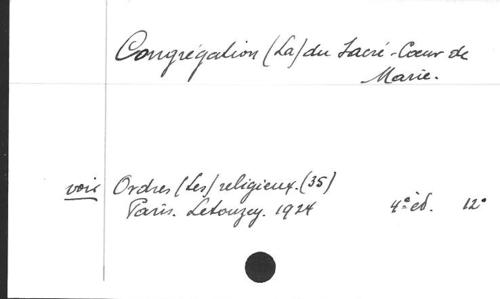 Congrégation (La) du Sacré-Cœur de
Marie.
voir Ordres (Les) religieux. (35)
Paris. Letouzey. 1924 4e éd. 12°